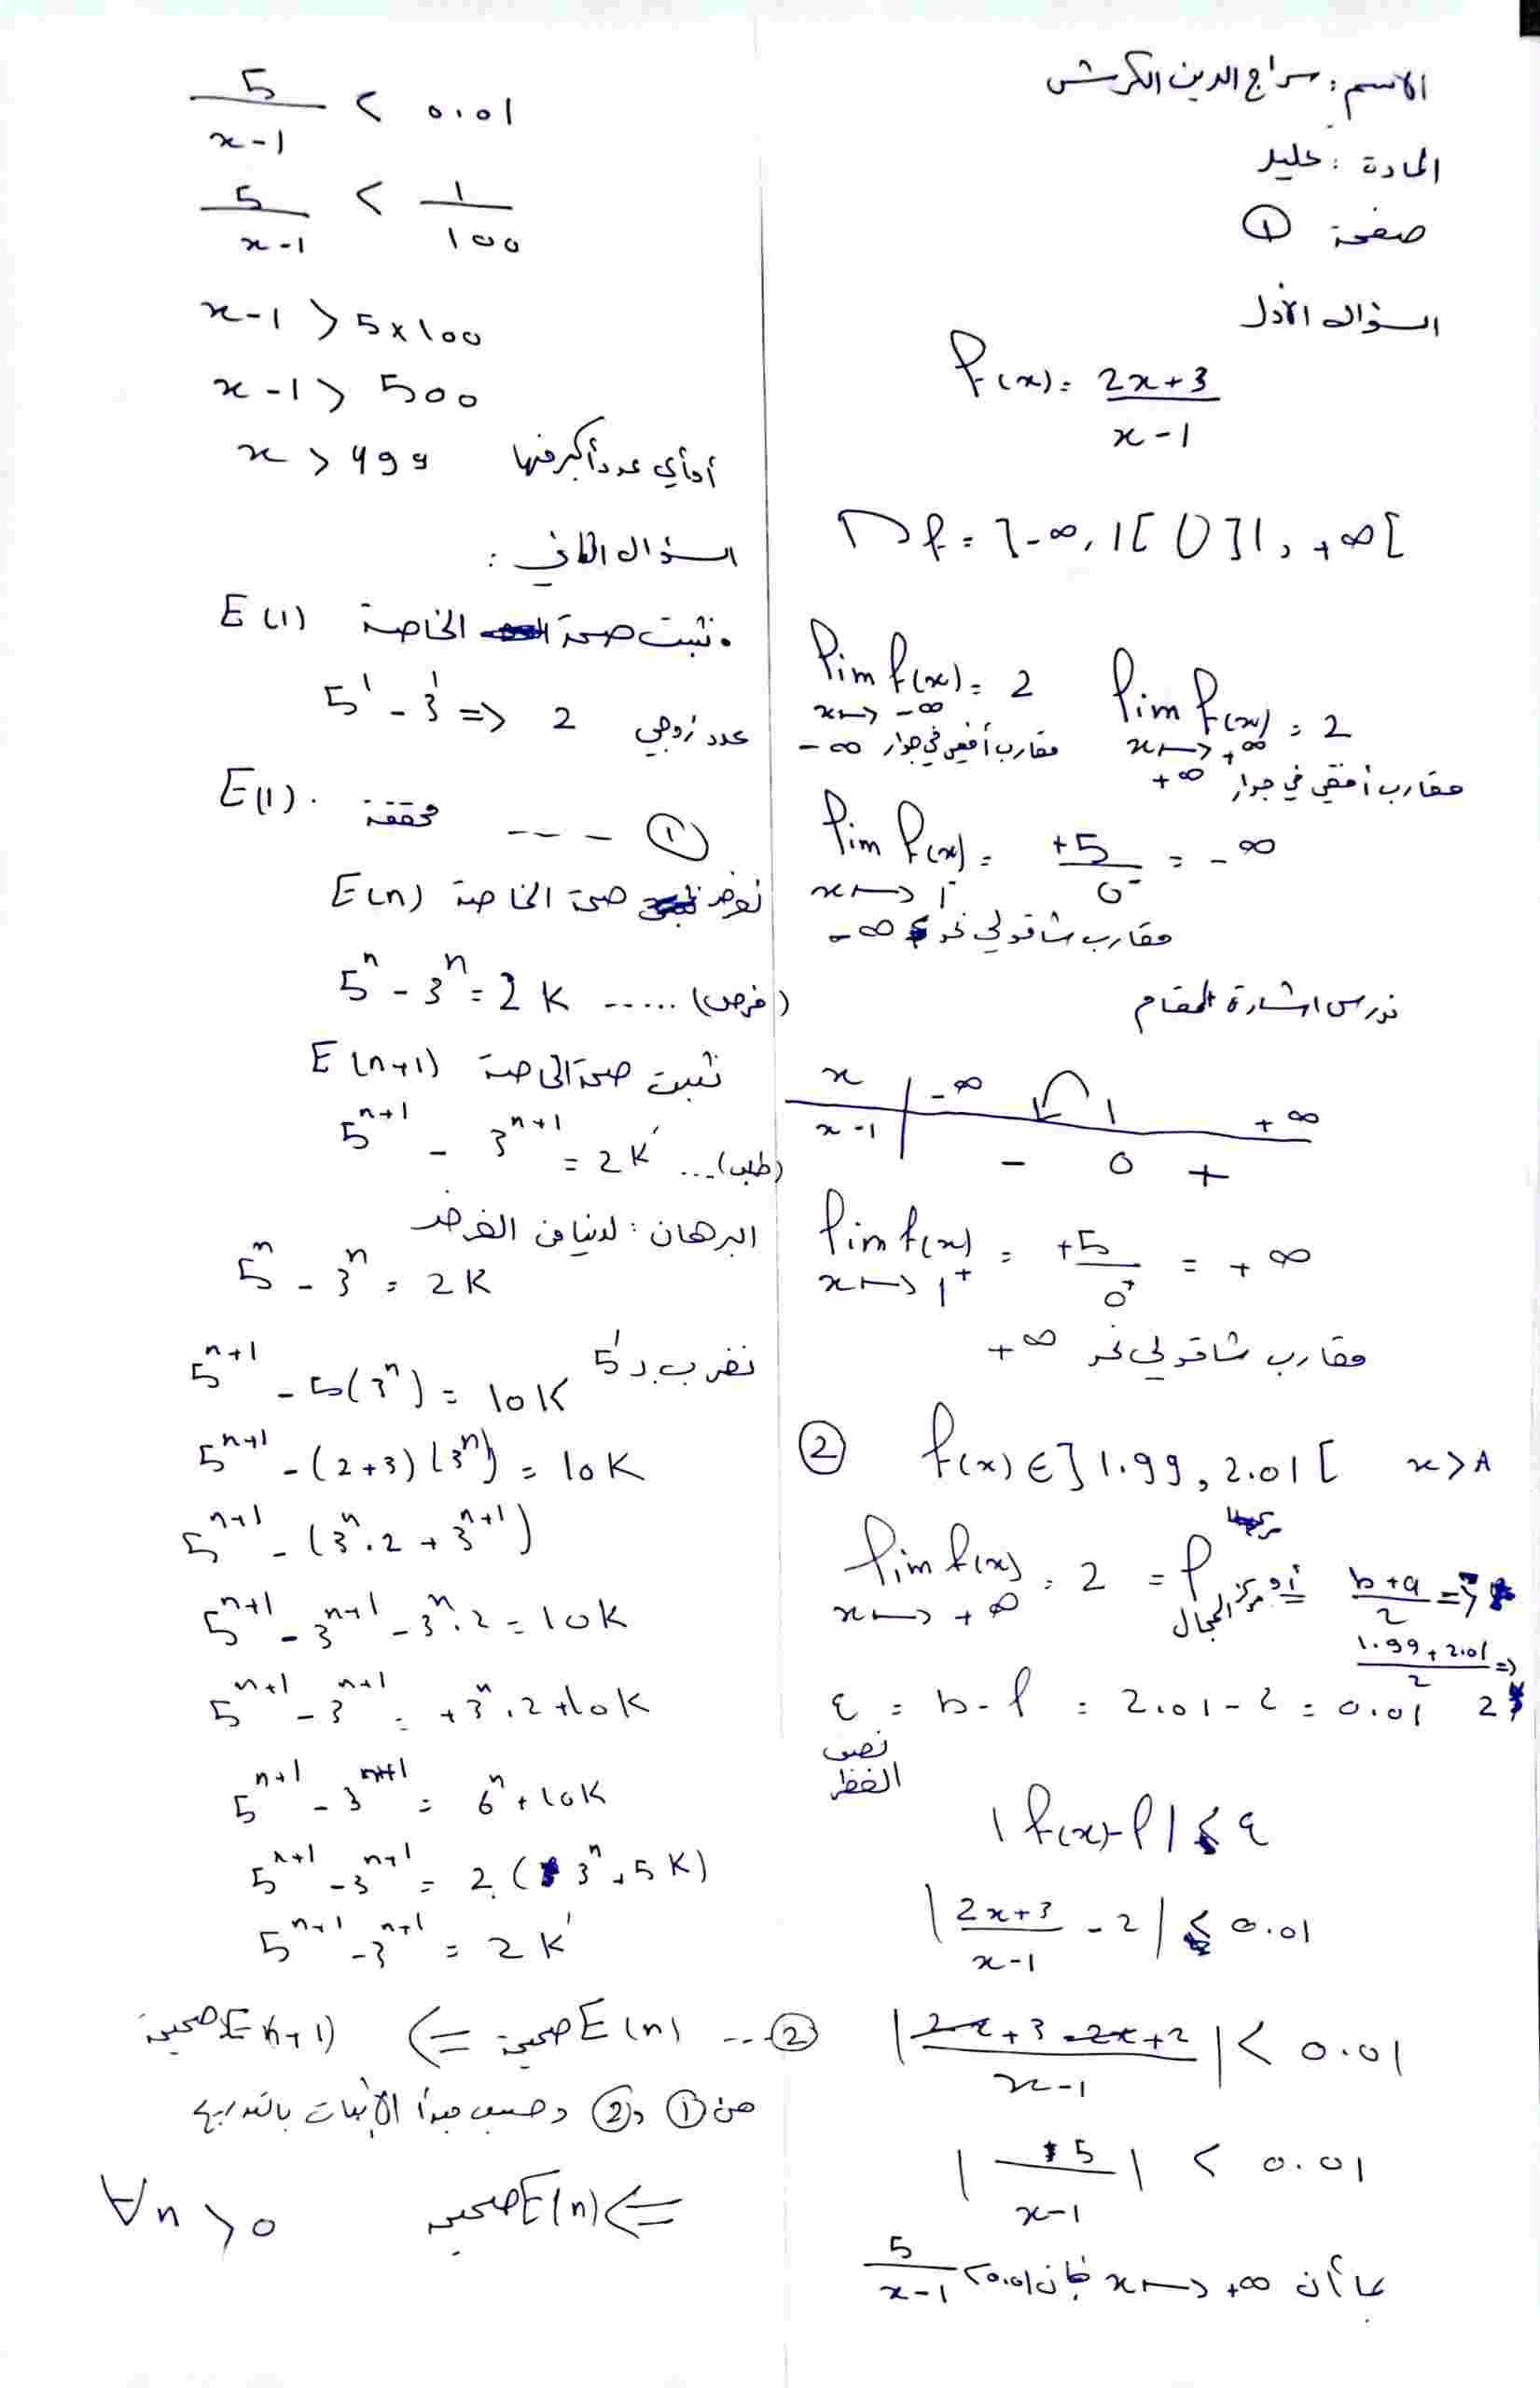 الاسم: سراج الدين الكرش
المادة:
صفحة ①
السؤال الأول
f(x) = 2x+3 / x-1
Df = ]-∞, 1[ U ]1, +∞[
lim f(x) = 2 x→ -∞
مقارب أفقي في جوار -∞
lim f(x) = 2 x→ +∞
مقارب أفقي في جوار +∞
lim f(x) = +5 / 0⁻ = -∞ x→ 1⁻
مقارب شاقولي نحو -∞
ندرس اشارة المقام
x | -∞ 1 +∞
x-1 | - 0 +
lim f(x) = +5 / 0⁺ = +∞ x→ 1⁺
مقارب شاقولي نحو +∞
② f(x) ∈ ]1.99, 2.01[ x > A
lim f(x) = 2 = l x→ +∞
أو مركز المجال b+a / 2 =>
1.99 + 2.01 / 2 => 2
ε = b - l = 2.01 - 2 = 0.01
نصف القطر
|f(x) - l| < ε
|2x+3 / x-1 - 2| < 0.01
|2x+3-2x+2 / x-1| < 0.01
|5 / x-1| < 0.01
بما أن x→ +∞ فإن 5 / x-1 < 0.01
5 / x-1 < 0.01
5 / x-1 < 1 / 100
x-1 > 5×100
x-1 > 500
x > 499 أو أي عدد أكبر منها
السؤال الثاني:
نثبت صحة الخاصة E(1)
5¹ - 3¹ => 2 عدد زوجي
E(1) محققة ---- ①
نفرض صحة الخاصة E(n)
5ⁿ - 3ⁿ = 2K ...... (فرض)
نثبت صحة الخاصة E(n+1)
5ⁿ⁺¹ - 3ⁿ⁺¹ = 2K' ... (طلب)
البرهان: لدينا من الفرض
5ⁿ - 3ⁿ = 2K
نضرب بـ 5¹
5ⁿ⁺¹ - 5(3ⁿ) = 10K
5ⁿ⁺¹ - (2+3)(3ⁿ) = 10K
5ⁿ⁺¹ - (3ⁿ.2 + 3ⁿ⁺¹)
5ⁿ⁺¹ - 3ⁿ⁺¹ - 3ⁿ.2 = 10K
5ⁿ⁺¹ - 3ⁿ⁺¹ = +3ⁿ.2 + 10K
5ⁿ⁺¹ - 3ⁿ⁺¹ = 6ⁿ + 10K
5ⁿ⁺¹ - 3ⁿ⁺¹ = 2(3ⁿ + 5K)
5ⁿ⁺¹ - 3ⁿ⁺¹ = 2K'
② ... E(n) صحيحة <= E(n+1) صحيحة
من ① و② وحسب مبدأ الإثبات بالتدريج
<= E(n) صحيحة ∀n > 0